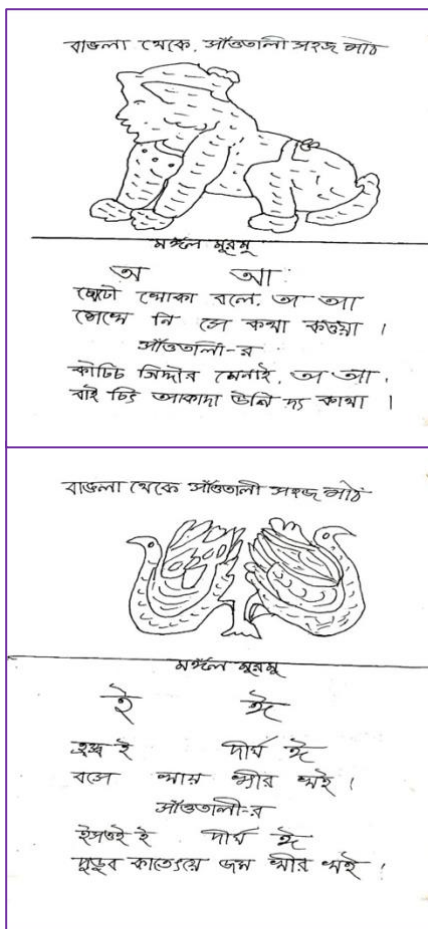 বাঙলা থেকে, সাঁওতালী সহজ পাঠ
মঙ্গল মুরমু
অ আ
ছোটো খোকা বলে, অ আ
শেখে নি সে কথা কওয়া ।
সাঁওতালী-র
কাটিচ গিদৗর মেনাই, অ আ,
বাই চিং আকাদা উনি দ্য কাথা ।
বাঙলা থেকে সাঁওতালী সহজ পাঠ
মঙ্গল মুরমু
ই ঈ
হ্রস্ব ই দীর্ঘ ঈ
বসে খায় ক্ষীর খই ।
সাঁওতালী-র
ই দীর্ঘ ঈ
দুড়ুব জম ক্ষীর খই ।